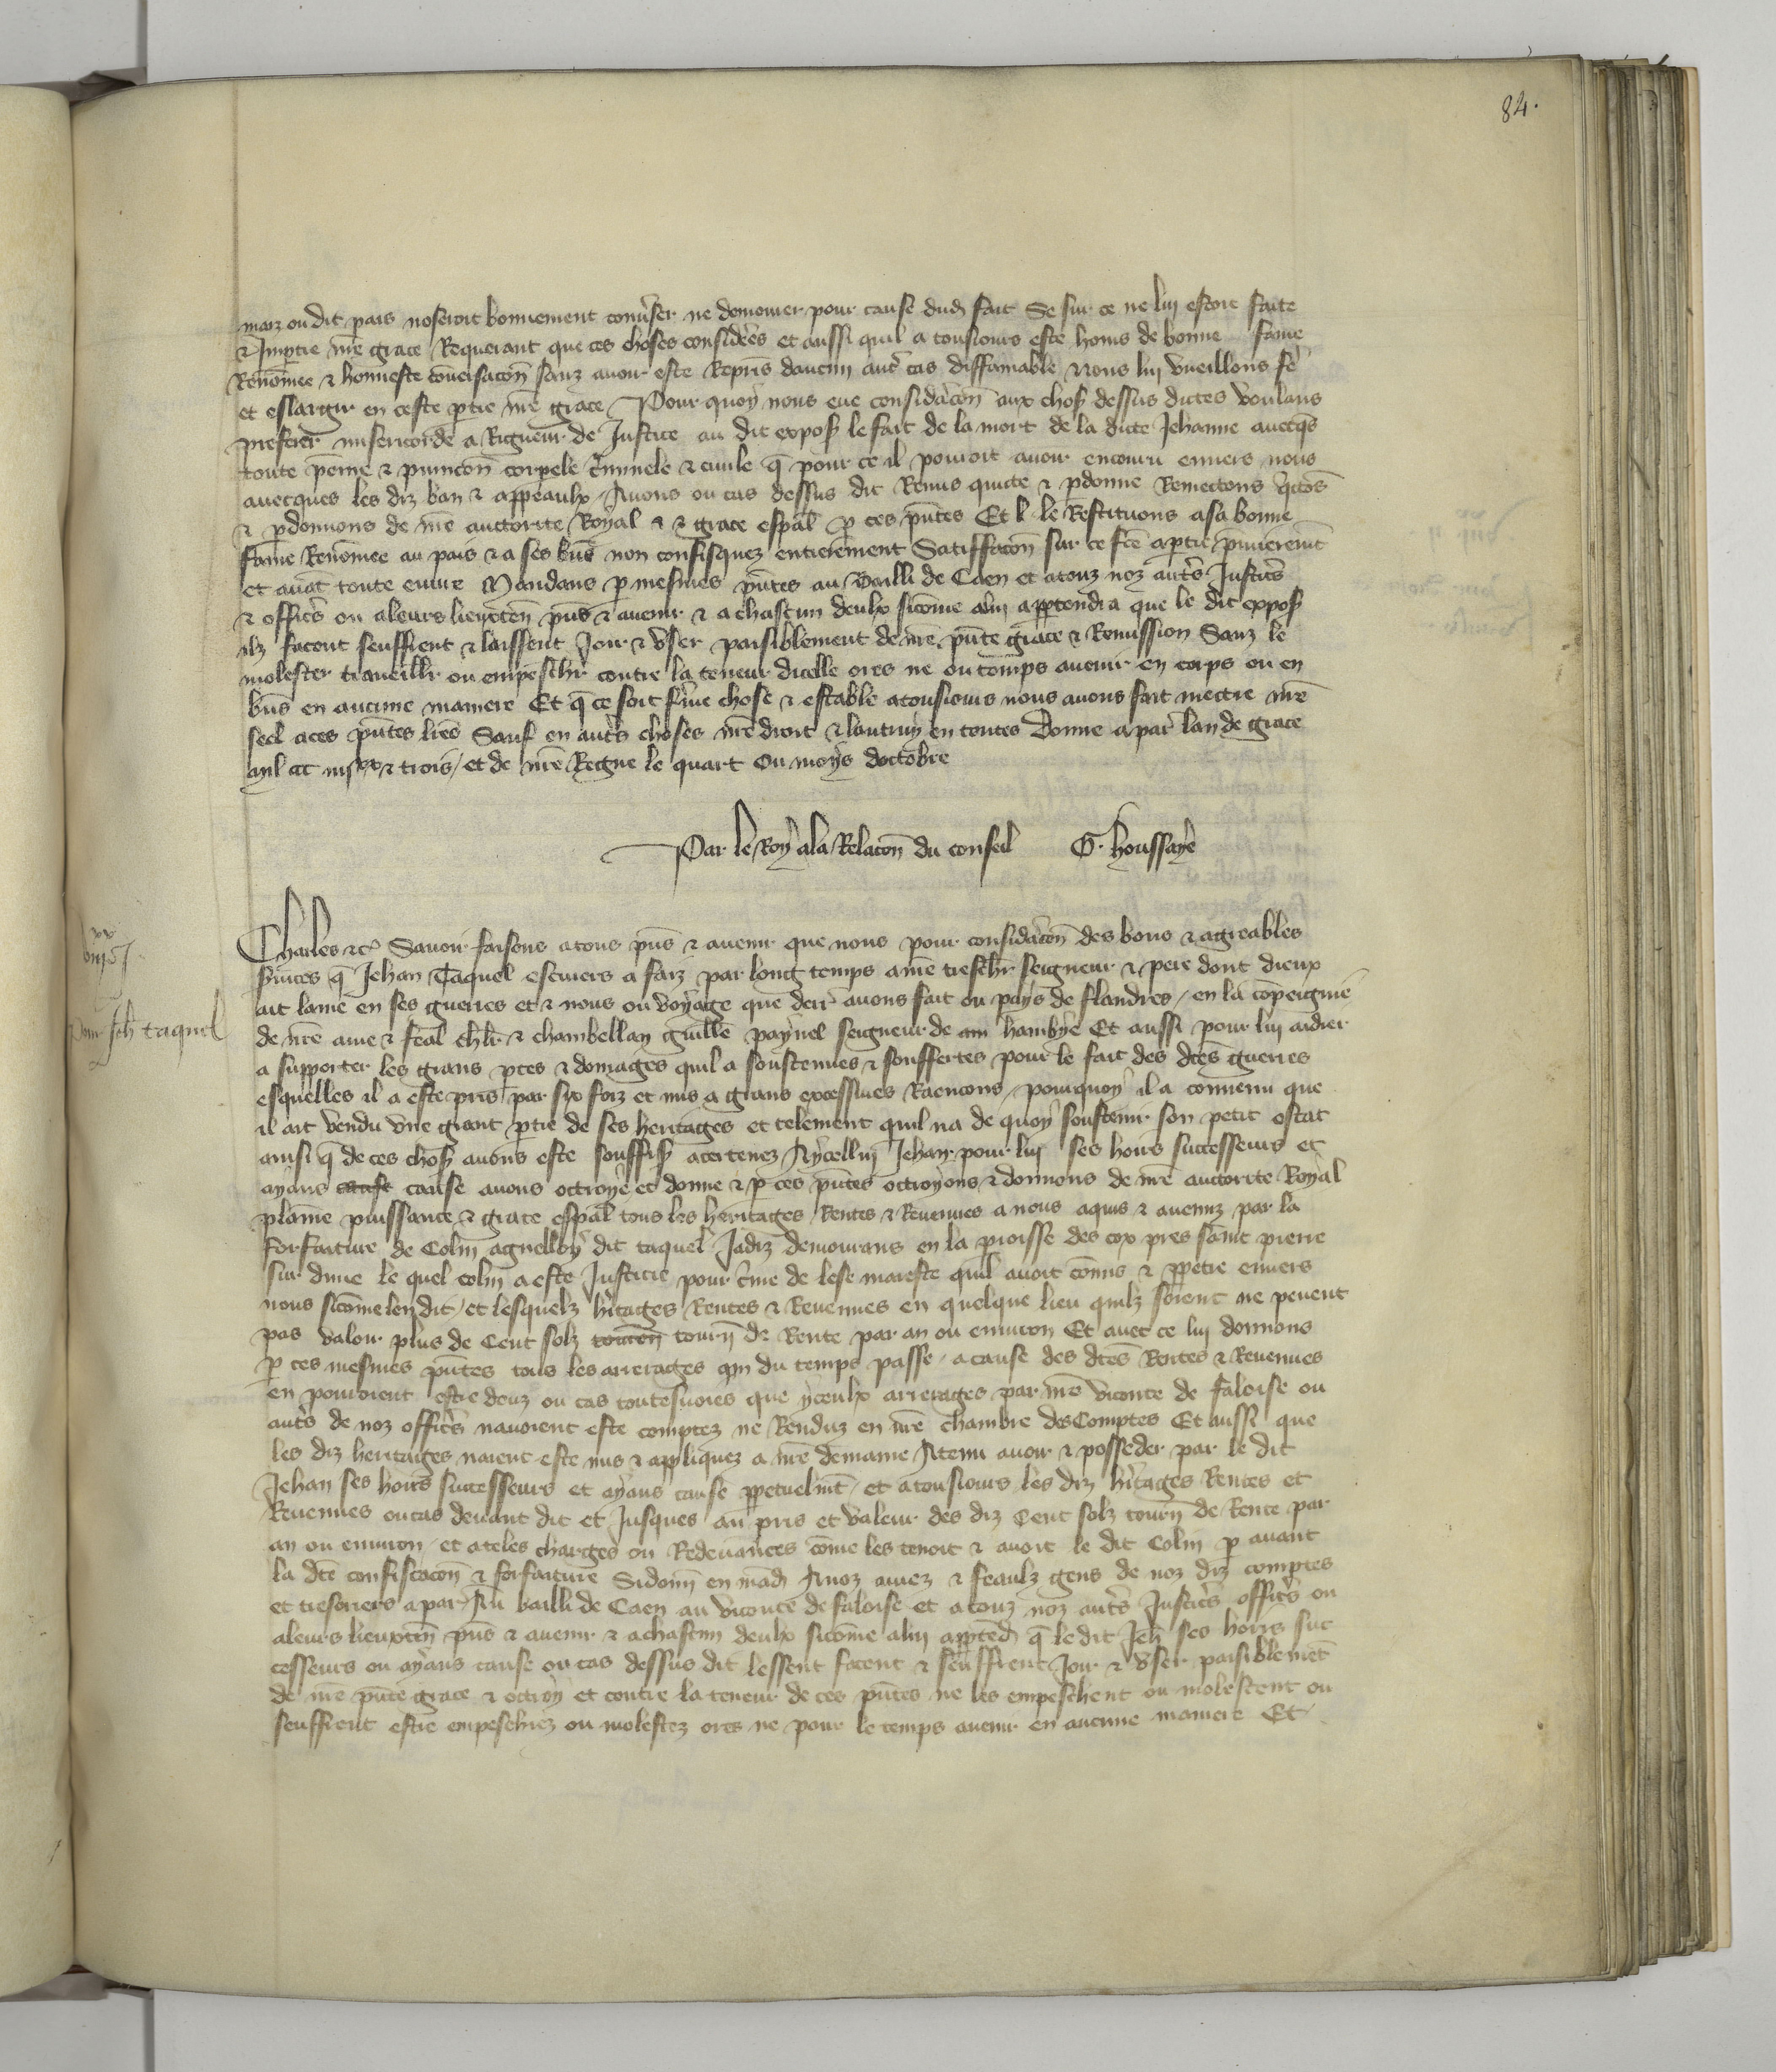 84.
maiz ou dit pais noseroit bonnement conv̾ser ne demourer pour cause dud fait Se sur ce ne lui estoit faite
& Impartie nr̄e grace Requerant que ces choses considerees et aussi quil a tousiours este homs de bonne fame
Renōmee & honneste cōuersacōn sanz auoir este Repris daucun aut̄ cas diffamable Nous lui vueillons fē
et eslargir en ceste p̄tie nr̄e grace Pour quoy nous eue consid̄acōn aux chos dessus dictes voulans
preferer misericorde a Rigueur de Justice au dit expos le fait de la mort de la dicte Jehanne auecqs
toute peīne & punicōn corpele c̄minele & ciuile q̄ pour ce il pouoit auoir encouru enuers nous
auecques les diz ban & appeaulx Auons ou cas dessus dit Remis quicte & p̄donne Remectons q̄ctōs
& p̄donnons de nr̄e auctorite Royal & & grace esp̄al p̄ ces pn̄tes Et l le Restituons a sa bonne
fame Renōmee au pais & a ses biēs non confisquez entierement Satiffacōn sur ce fc̄e a p̄tie p̄mierem̄t
et auāt toute euure Mandans p̄ mesmes pn̄tes au Bailli de Caen et a touz noz aut̄s Justic̄s
& offic̄s ou a leurs lieuxten̄ pn̄s & auenir & a chascun deulx sicōme a lui app̄tendra que le dit expos
ilz facent seuffrent & laissent Joir & vser paisiblement de nr̄e pn̄te grace & Remission Sanz le
molester trauaillr ou empeschr contre la teneur dicelle ores ne ou temps auenir en corps ou en
biēs en aucune maniere Et q̄ ce soit f̄me chose & estable a tousiours nous auons fait mectre nr̄e
seel a ces pn̄tes lr̄es Sauf en aut̄s choses nr̄e droit & lautruy en toutes Donne a par̄ lan de grace
mil ccc iiijxx & trois / et de nr̄e Regne le quart Ou moys doctobre
Par le Roy a la Relacōn du conseil G. houssaye
Charles &c̄ Sauoir faisons a tous pn̄s & auenir que nous pour consid̄acōn des bons & agreables
s̄uices q̄ Jehan Taquel escuiers a faiz par long temps a nr̄e treschr̄ seigneur & pere dont dieux
ait lame en ses guerres et & nous ou voyage que derr̄ auons fait ou pays de flandres / en la cōpeignie
de nr̄e ame & feal chlr̄ & chambellan guille paynel seigneur de am hambye Et aussi pour lui aidier
a supporter les grans p̄tes & domages quil a soustenues & souffertes pour le fait des dc̄es guerres
esquelles il a este pris par six foiz et mis a grans excessiues Raencons / pourquoy il a conuenu que
il ait vendu vne grant p̄tie de ses heritages et telement quil na de quoy soustenir son petit estat
ainsi q̄ de ces chos auons este souffis acertenez Aycellui Jehan pour lui ses hoirs successeurs et
ayans cause auons octroye et donne & p̄ ces pn̄tes octroyons & donnons de nr̄e auctorite Royal
plaīne puissance & grace esp̄al tous les heritages Rentes & Reuenues a nous aquis & auenuz par la
forfaiture de Colin agnelloy dit taquel Jadiz demourans en la p̄roisse des cox pres saint pierre
sur diue le quel colin a este Justicie pour c̄me de lese maieste quil auoit cōmis & pp̄etre enuers
nous sicōme len dit / et lesquelz h̄itages Rentes & Reuenues en quelque lieu quilz soient ne peuent
pas valoir plus de Cent solz tourn̄ de Rente par an ou enuiron Et auec ce lui donnons
p̄ ces mesmes pn̄tes tous les arrerages qui du temps passe / a cause des dc̄es Rentes & Reuenues
en pouoient estre deuz ou cas toutesuoies que yceulx arrerages par nr̄e viconte de faloise ou
aut̄s de noz offic̄s nauoient este comptez ne Renduz en nr̄e chambre des Comptes Et aussi que
les diz heritages naient este mis & appliquez a nr̄e demaine A tenir auoir & posseder par le dit
Jehan ses hoirs successeurs et ayans cause pp̄etuelm̄t / et a tousiours les diz h̄itages Rentes et
Reuenues ou cas deuant dit et Jusques au pris et valeur des diz Cent solz tourn̄ de Rente par
an ou enuiron / et a teles charges ou Redeuances cōme les tenoit & auoit le dit Colin p̄ auant
la dc̄e confiscacōn & forfaiture Si donn̄ en mād A noz amez & feaulz gens de noz diz comptes
et tresoriers a par̄ Au bailli de Caen au viconte de faloise et a touz noz aut̄s Justic̄s offic̄s ou
a leurs lieuxten̄ pn̄s & auenir & a chascun deulx sicōme a lui app̄tēd q̄ le dit Jeh̄ ses hoirs suc
cesseurs ou ayans cause ou cas dessus dit lessent facent & seuffrent Joir & vser paisiblemēt
de nr̄e pn̄te grace & octroy et contre la teneur de ces pn̄tes ne les empeschent ou molestent ou
seuffrent estre empeschiez ou molestez ores ne pour le temps auenir en aucune maniere Et
Pour Jeh̄ taquel